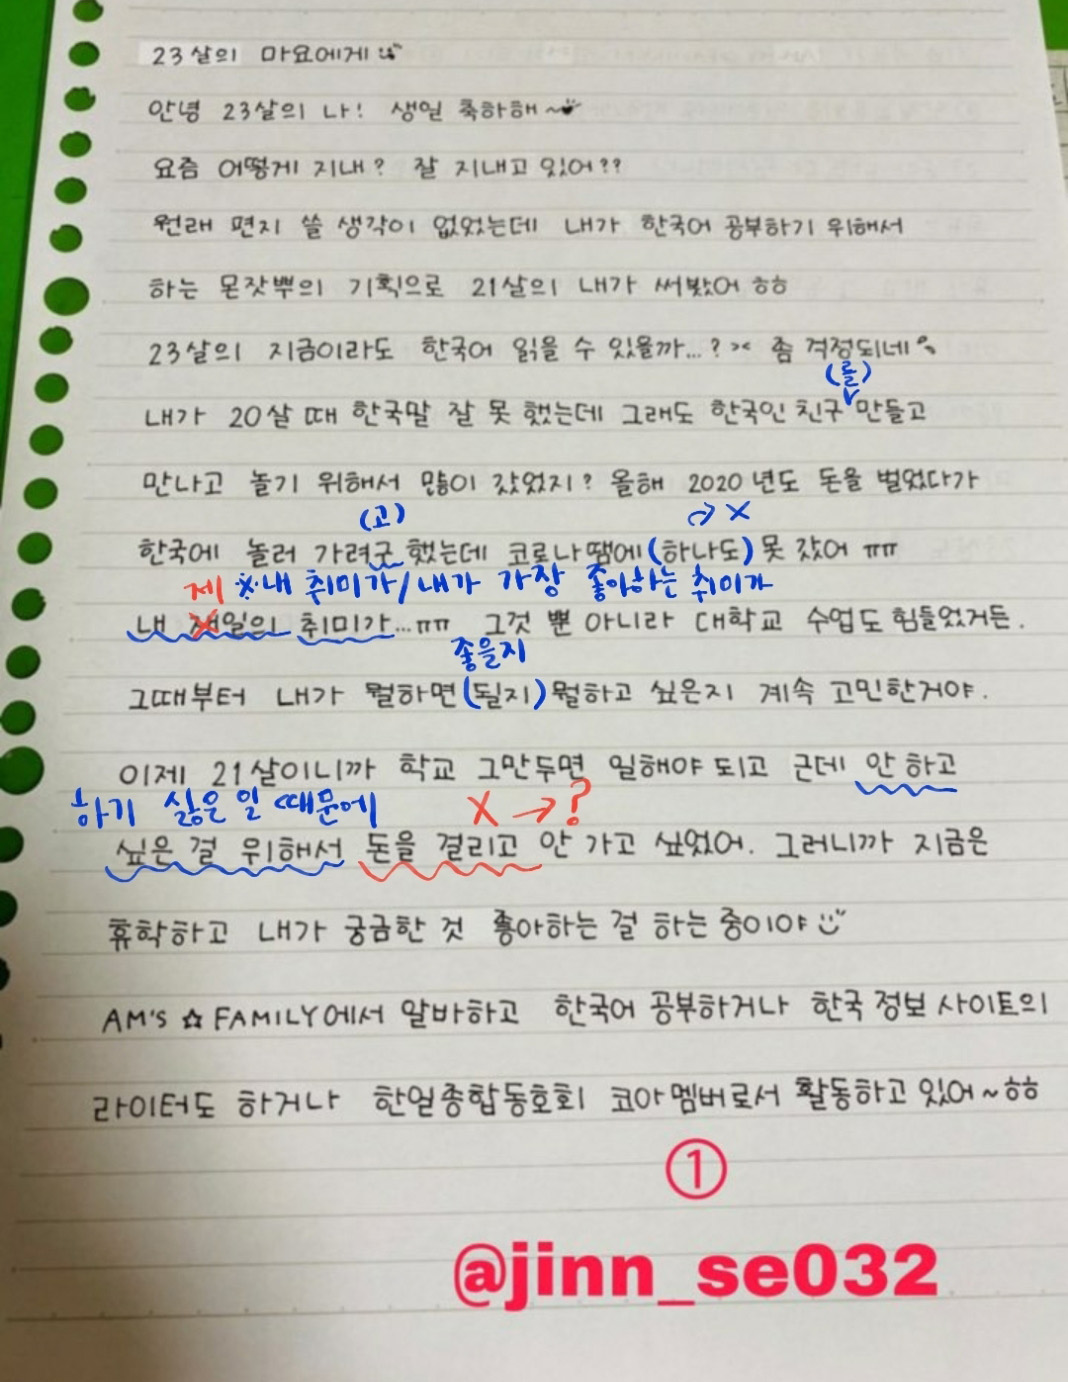 23살의 마요에게
안녕 23살의 나! 생일 축하해~
요즘 어떻게 지내? 잘 지내고 있어??
원래 편지 쓸 생각이 없었는데 내가 한국어 공부하기 위해서
하는 몬잣뿌의 기획으로 21살의 내가 써봤어 ㅎㅎ
23살의 지금이라도 한국어 읽을 수 있을까...? >< 좀 걱정되네
(를)
내가 20살 때 한국말 잘 못 했는데 그래도 한국인 친구 만들고
만나고 놀기 위해서 많이 갔었지? 올해 2020년도 돈을 벌었다가
(고) → X
한국에 놀러 가려굿 했는데 코로나땜에 (하나도) 못 갔어 ㅠㅠ
제 ※내 취미가/내가 가장 좋아하는 취미가
내 재일의 취미가...ㅠㅠ 그것 뿐 아니라 대학교 수업도 힘들었거든.
좋을지
그때부터 내가 뭘하면 (될지) 뭘하고 싶은지 계속 고민한거야.
이제 21살이니까 학교 그만두면 일해야 되고 근데 안 하고
하기 싫은 일 때문에 X → ?
싶은 걸 위해서 돈을 걸리고 안 가고 싶었어. 그러니까 지금은
휴학하고 내가 궁금한 것 좋아하는 걸 하는 중이야
AM's ☆ FAMILY에서 알바하고 한국어 공부하거나 한국 정보 사이트의
라이터도 하거나 한일종합동호회 코아멤버로서 활동하고 있어~ㅎㅎ
①
@jinn_se032